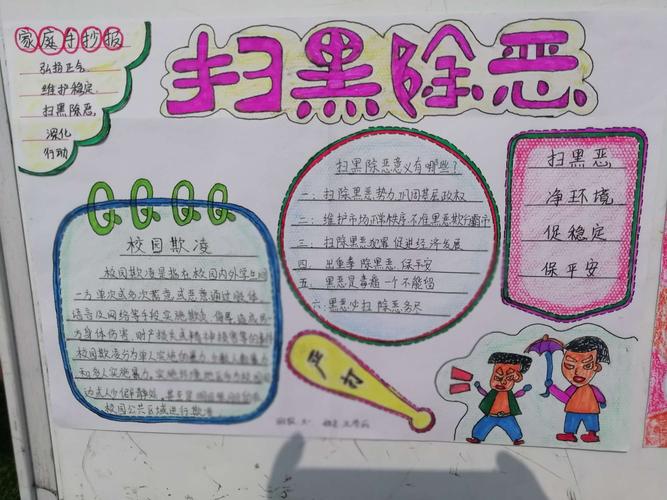 家庭手抄报
弘扬正气
维护稳定
扫黑除恶,
深化
行动
扫黑除恶
校园欺凌
校园欺凌是指在校园内外学生间
一方单次或多次蓄意或恶意通过肢体
语言及网络等手段实施欺负、侮辱造成
身体伤害、财产损失或精神损害等
校园欺凌分为单人实施的暴力
和多人实施暴力。实施环境地
校园公共区域进行欺凌
扫黑除恶意义有哪些?
一、扫除黑恶势力巩固基层政权
二、维护市场正常秩序,不准黑恶欺行霸市
三、扫除黑恶犯罪促进经济发展
四、出重拳除黑恶,保平安
五、黑恶是毒瘤一个不能留
六、黑恶必扫除恶务尽
扫黑恶
净环境
促稳定
保平安
严打